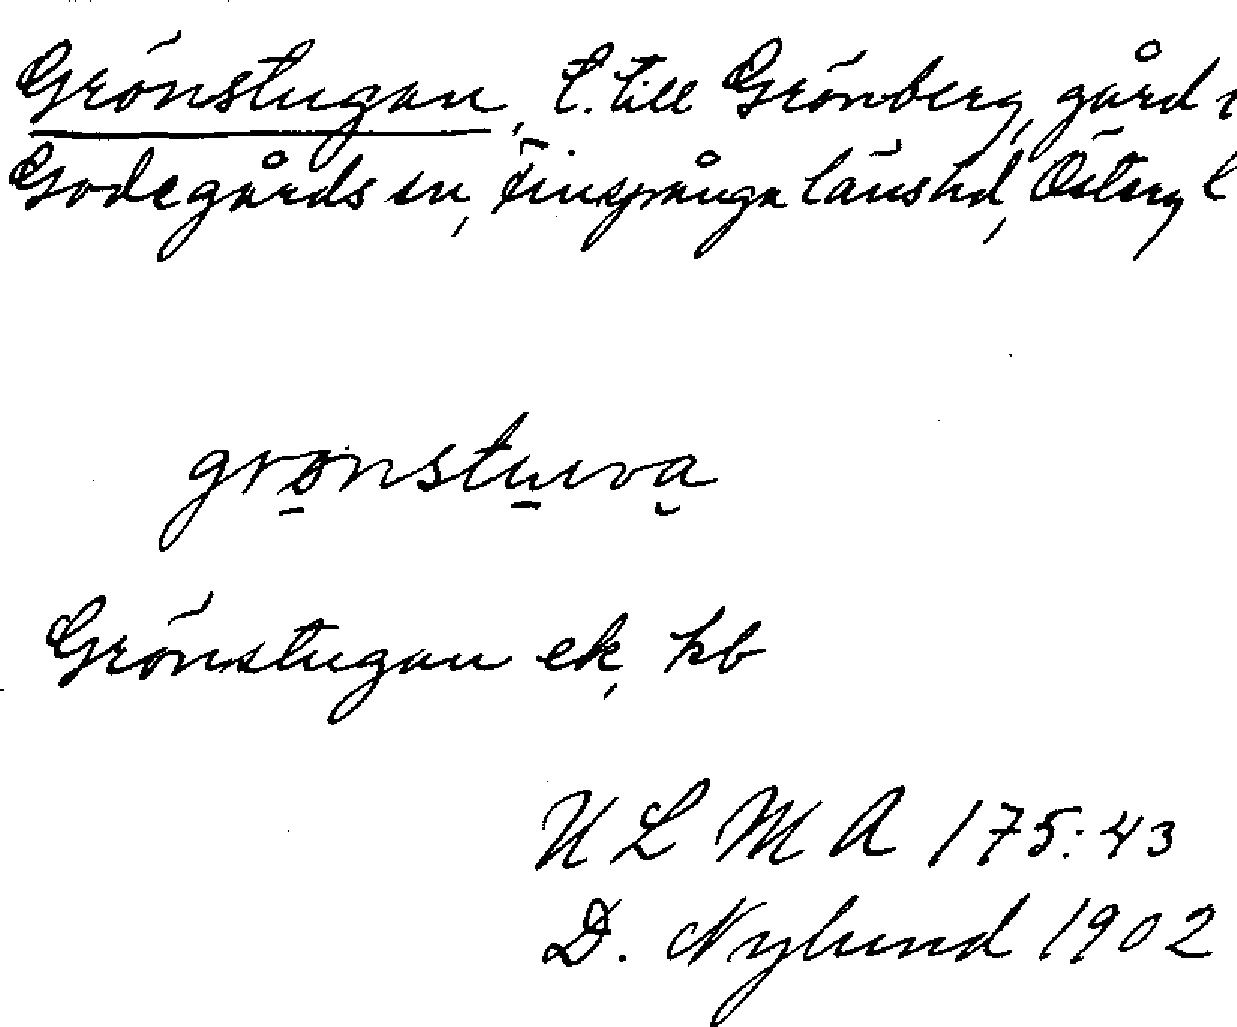 Grönstugan, t. till Grönberg, gård i
Godegårds sn, Finspånga länshd, Österg l
grönstuva
Grönstugan ek, kb
ULMA 175:43
D. Nylund 1902